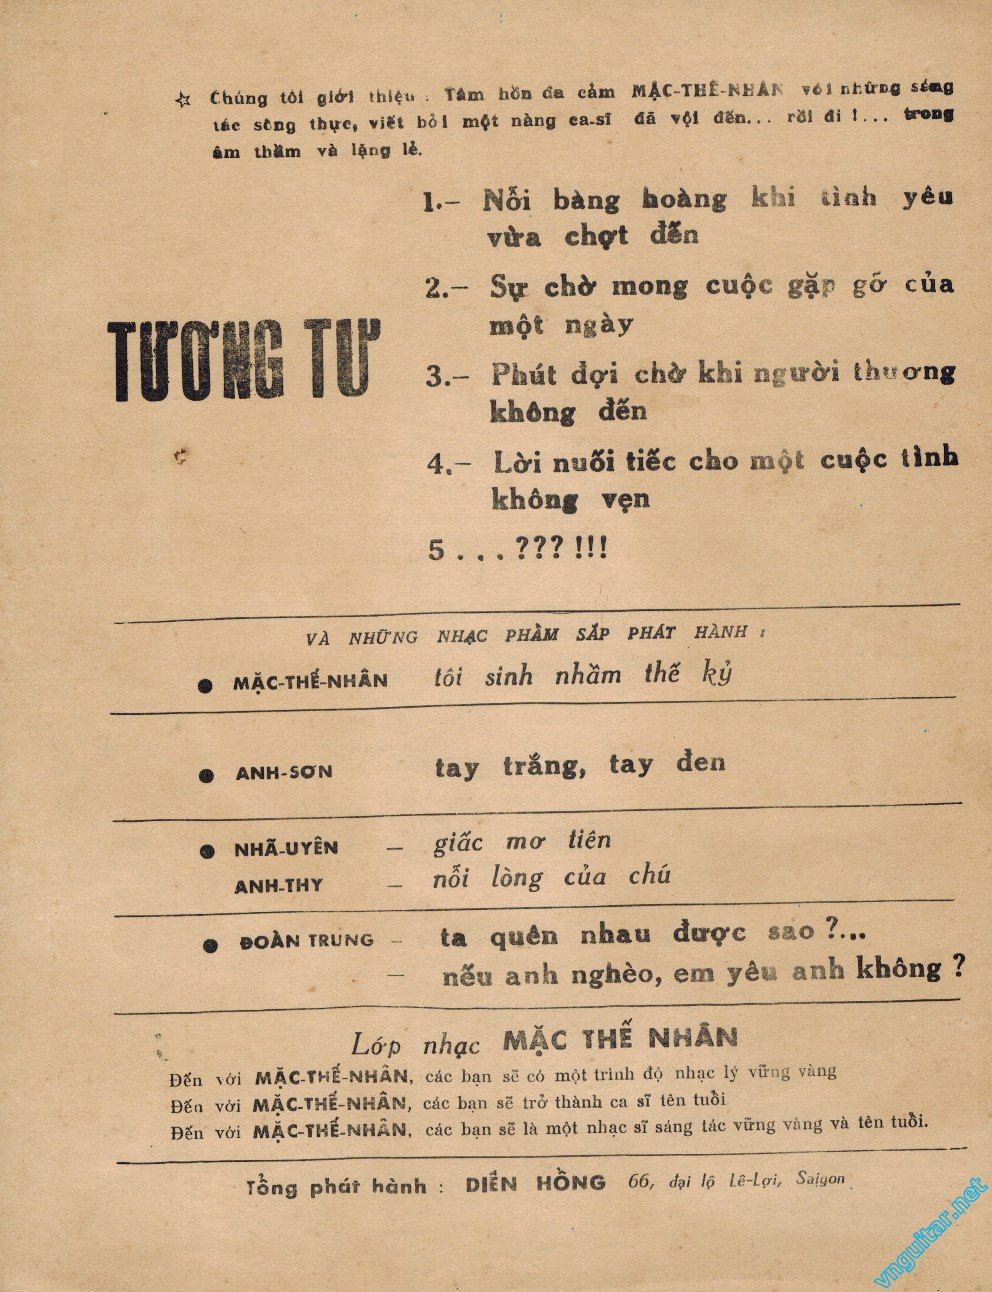 ☆ Chúng tôi giới thiệu : Tâm hồn đa cảm MẶC-THẾ-NHÂN với những sáng
tác sống thực, viết bởi một nàng ca-sĩ đã vội đến... rồi đi !... trong
âm thầm và lặng lẻ.
1.— Nỗi bàng hoàng khi tình yêu
vừa chợt đến
2.— Sự chờ mong cuộc gặp gỡ của
một ngày
TƯƠNG TƯ
3.— Phút đợi chờ khi người thương
không đến
4.— Lời nuối tiếc cho một cuộc tình
không vẹn
5 . . . ??? !!!
VÀ NHỮNG NHẠC PHẨM SẮP PHÁT HÀNH :
● MẶC-THẾ-NHÂN tôi sinh nhầm thế kỷ
● ANH-SƠN tay trắng, tay đen
● NHÃ-UYÊN — giấc mơ tiên
ANH-THY — nỗi lòng của chú
● ĐOÀN TRUNG — ta quên nhau được sao ?...
— nếu anh nghèo, em yêu anh không ?
Lớp nhạc MẶC THẾ NHÂN
Đến với MẶC-THẾ-NHÂN, các bạn sẽ có một trình độ nhạc lý vững vàng
Đến với MẶC-THẾ-NHÂN, các bạn sẽ trở thành ca sĩ tên tuổi
Đến với MẶC-THẾ-NHÂN, các bạn sẽ là một nhạc sĩ sáng tác vững vàng và tên tuổi.
Tổng phát hành : DIÊN HỒNG 66, đại lộ Lê-Lợi, Saigon
vnguitar.net